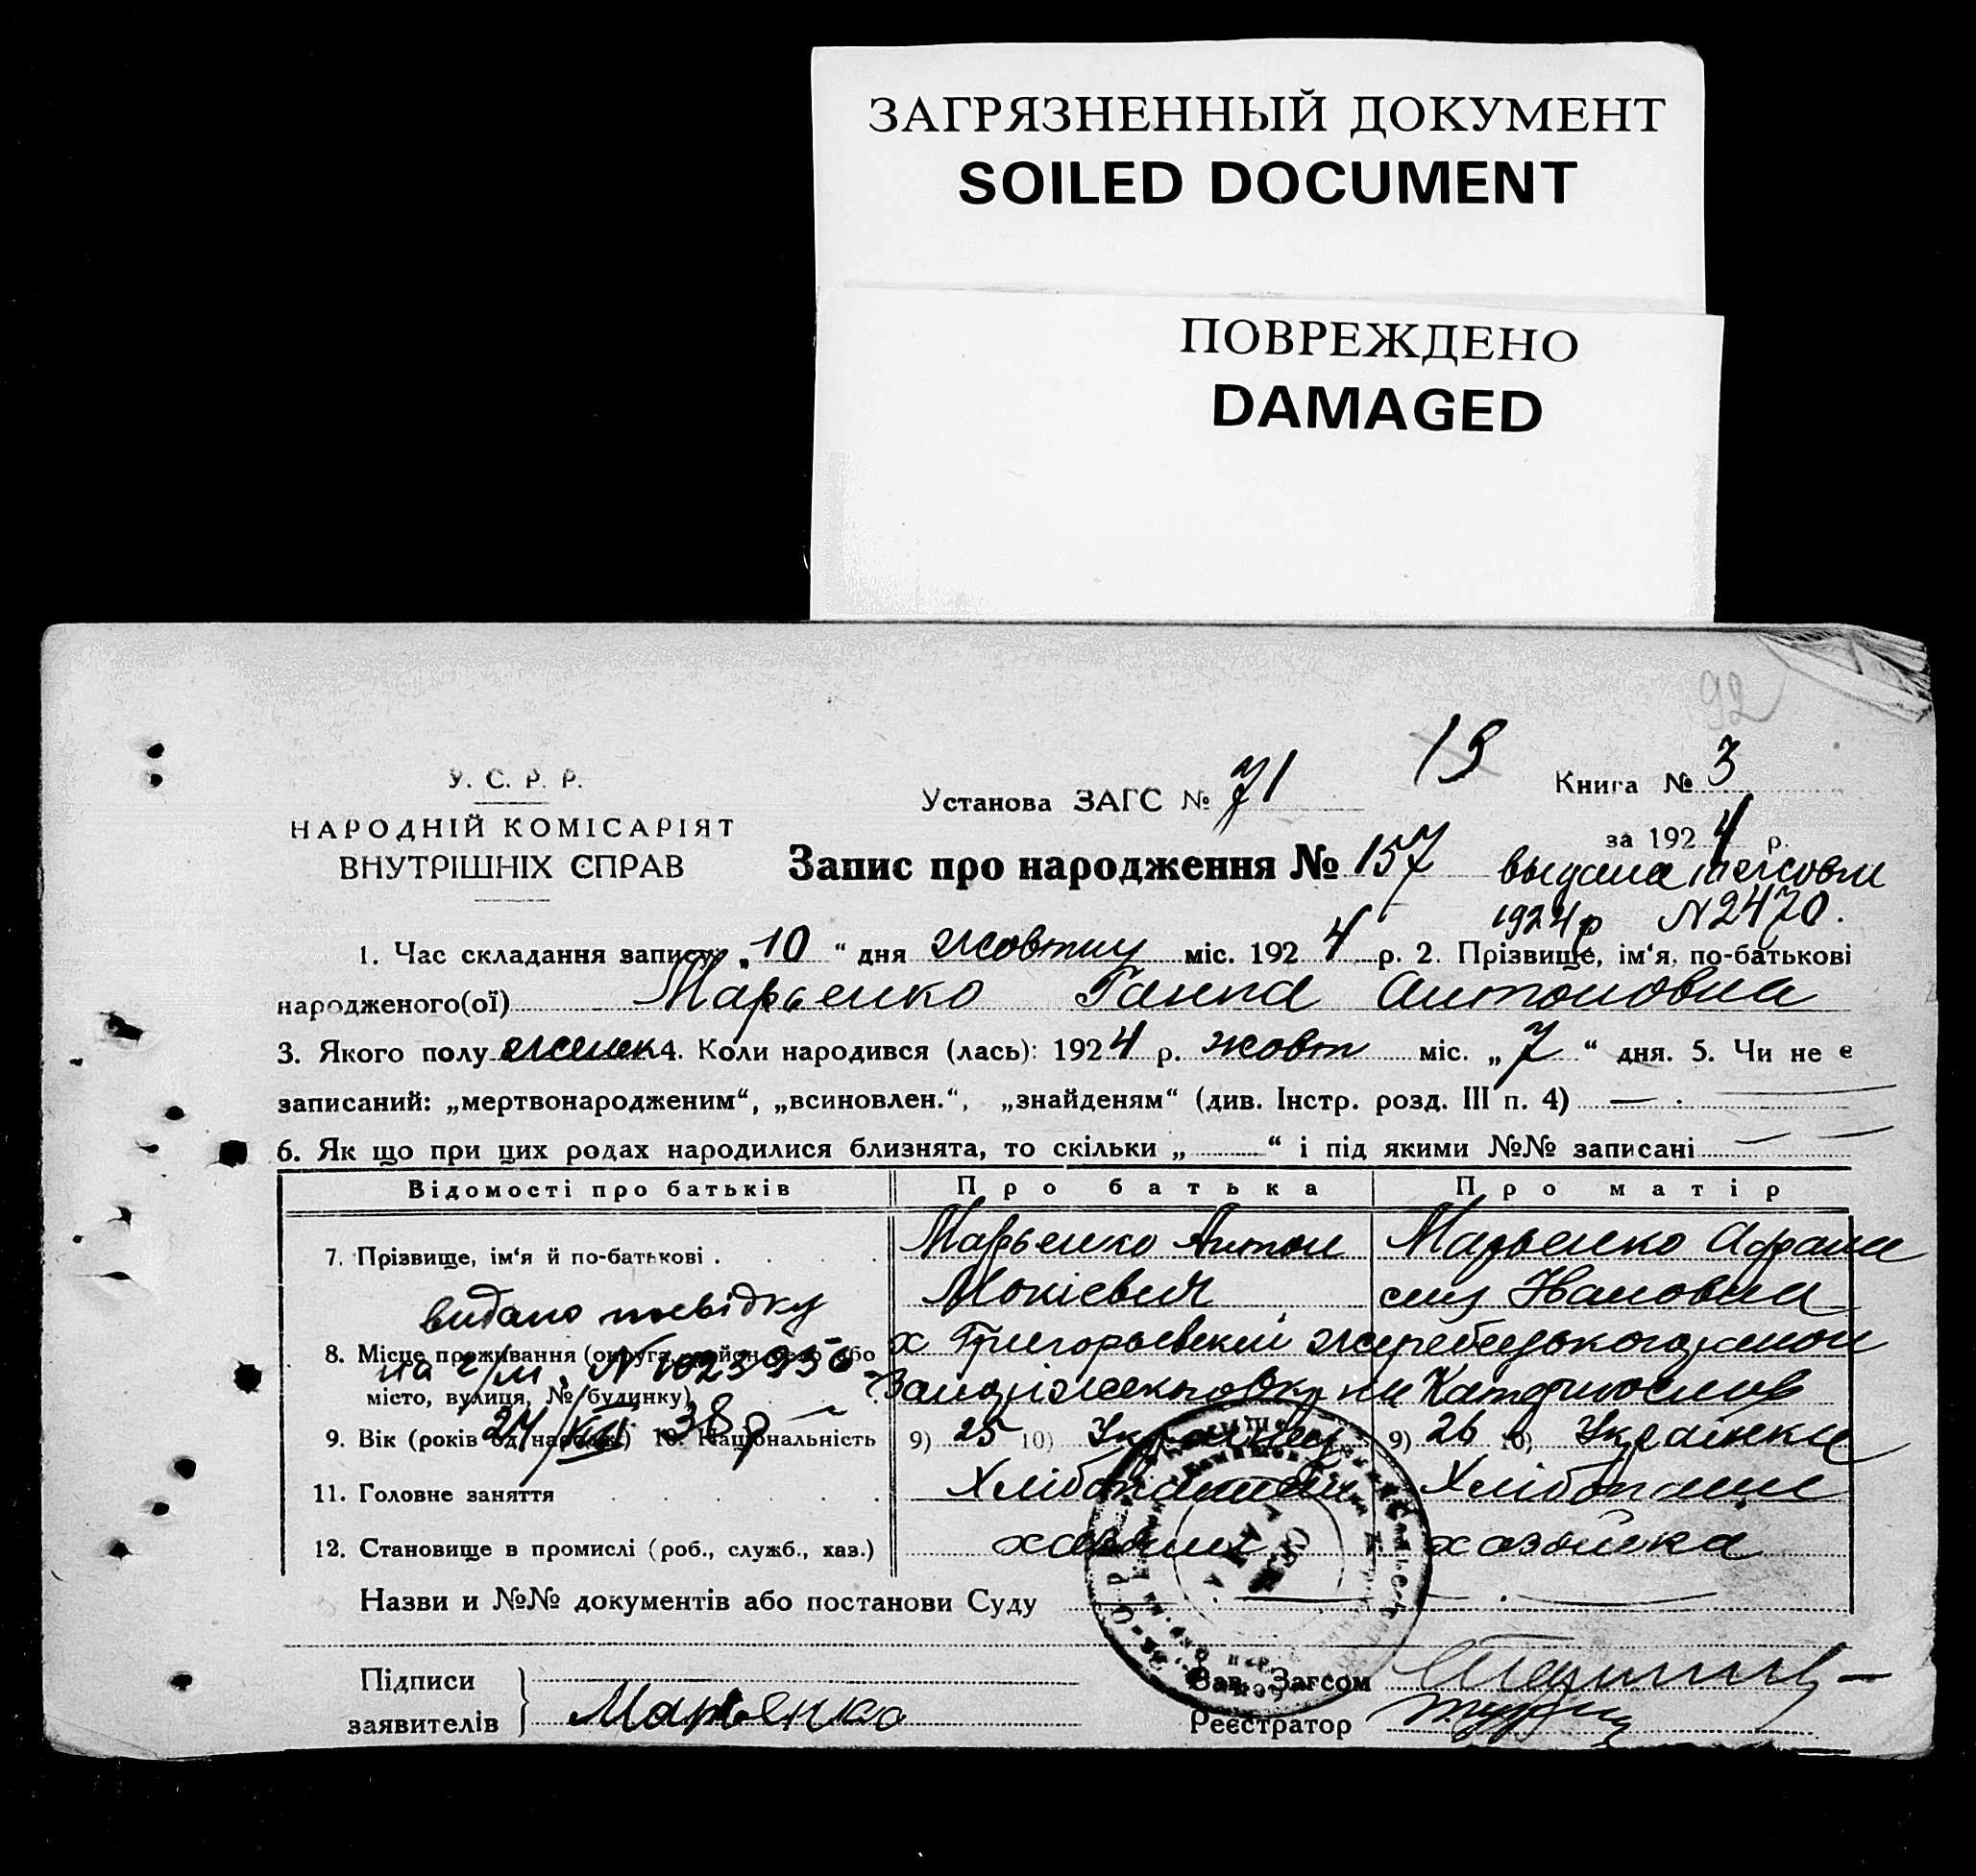 ЗАГРЯЗНЕННЫЙ ДОКУМЕНТ
SOILED DOCUMENT
ПОВРЕЖДЕНО
DAMAGED
92
У. С. Р. Р.
НАРОДНІЙ КОМІСАРІЯТ
ВНУТРІШНІХ СПРАВ
Установа ЗАГС № 71
Книга № 3
за 1924 р.
Запис про народження № 157
выдана
1924р N2470.
1. Час складання запису: „10“ дня жовтня міс. 1924 р. 2. Прізвище, ім‘я, по-батькові
народженого(ої) Марьенко Ганна Антоновна
3. Якого полу женск 4. Коли народився (лась): 1924 р. жовт міс. „7“ дня. 5. Чи не є
записаний: „мертвонародженим“, „всиновлен.“, „знайденям“ (див. Інстр. розд. III п. 4) —
6. Як що при цих родах народилися близнята, то скільки „ “ і під якими №№ записані — —
Відомості про батьків Про батька Про матір
7. Прізвище, ім‘я й по-батькові . Марьенко Антон Марьенко
Мокієвич
видано посвідку
8. Місце проживання (округа, район, село або х Григорьевский
на г/м. N 1023936
місто, вулиця, № будинку)
24/XII 38р
9. Вік (років од народж.) 10. Національність 9) 25 10) Українец 9) 26 10) Українка
11. Головне заняття Хлібопашец Хлібопаш
12. Становище в промислі (роб., служб., хаз.) хазяин хазяйка
Назви и №№ документів або постанови Суду
Підписи
заявителів Марьенко
Зав. Загсом
Реєстратор